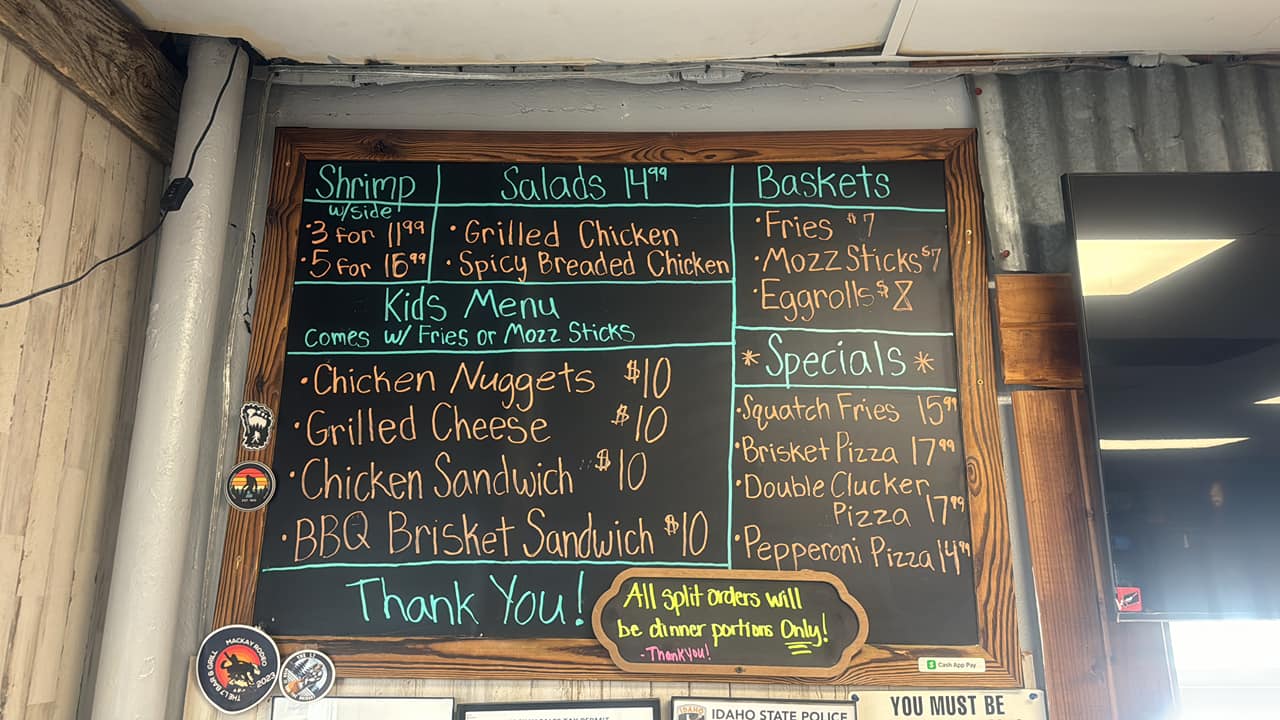 Shrimp
w/side
·3 for 11⁹⁹
·5 for 16⁹⁹
Salads 14⁹⁹
·Grilled Chicken
·Spicy Breaded Chicken
Kids Menu
Comes w/ Fries or Mozz Sticks
·Chicken Nuggets $10
·Grilled Cheese $10
·Chicken Sandwich $10
·BBQ Brisket Sandwich $10
Thank You!
Baskets
·Fries $7
·Mozz Sticks $7
·Eggrolls $8
*Specials*
·Squatch Fries 15⁹⁹
·Brisket Pizza 17⁹⁹
·Double Clucker
Pizza 17⁹⁹
·Pepperoni Pizza 14⁹⁹
All split orders will
be dinner portions Only!
-Thank you!
Cash App Pay
MACKAY RODEO
2023
THE L7 BAR & GRILL
IDAHO
IDAHO STATE POLICE
YOU MUST BE